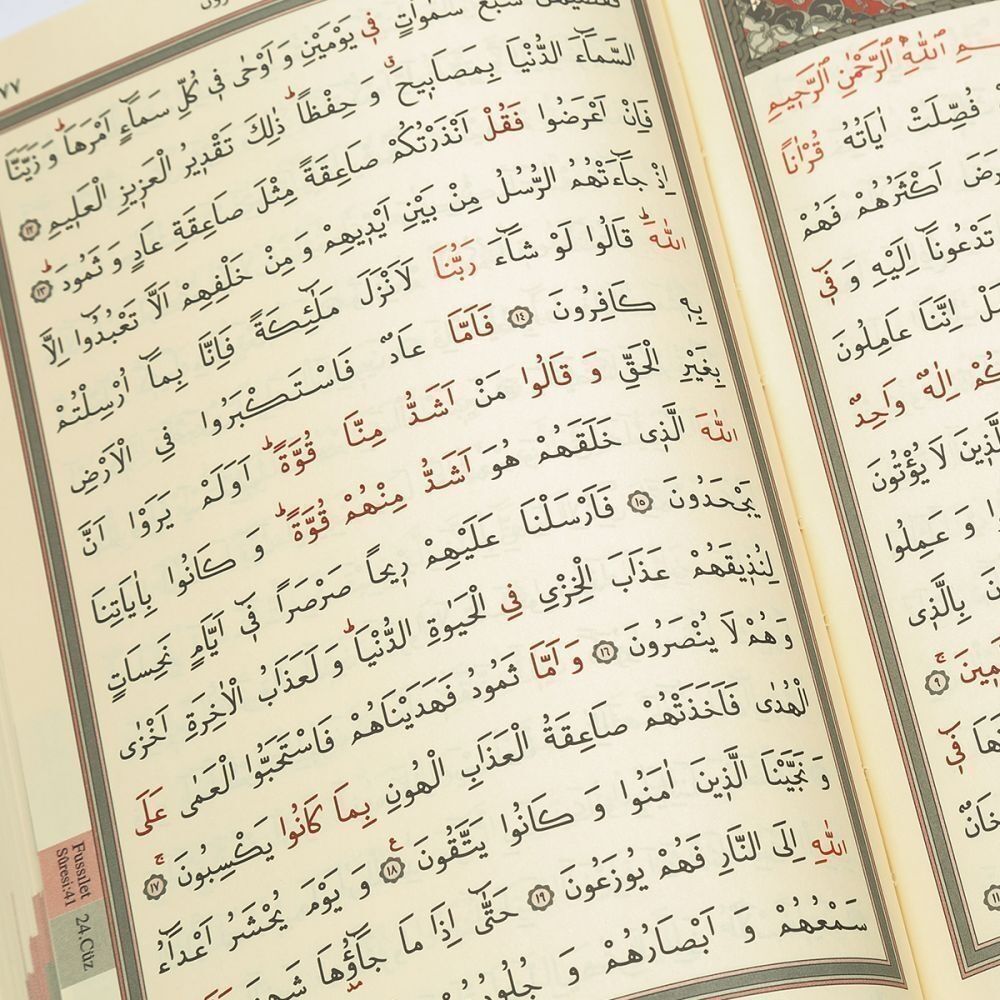 اللهِ الرَّحْمٰنِ الرَّحٖيمِ
فُصِّلَتْ اٰيَاتُهُ قُرْاٰناً
اَكْثَرُهُمْ فَهُمْ
تَدْعُونَٓا اِلَيْهِ وَ فٖٓي
اِنَّنَا عَامِلُونَ
اِلٰهٌ وَاحِدٌ
لَا يُؤْتُونَ
وَ عَمِلُوا
بِالَّذٖي
٩
فٖي
٧٧
سَبْعَ سَمٰوَاتٍ فٖي يَوْمَيْنِ وَ اَوْحٰى فٖي كُلِّ سَمَٓاءٍ اَمْرَهَاؕ وَ زَيَّنَّا
السَّمَٓاءَ الدُّنْيَا بِمَصَابٖيحَۗ وَ حِفْظاًؕ ذٰلِكَ تَقْدٖيرُ الْعَزٖيزِ الْعَلٖيمِ ١٢
فَاِنْ اَعْرَضُوا فَقُلْ اَنْذَرْتُكُمْ صَاعِقَةً مِثْلَ صَاعِقَةِ عَادٍ وَ ثَمُودَؕ ١٣
اِذْ جَٓاءَتْهُمُ الرُّسُلُ مِنْ بَيْنِ اَيْدٖيهِمْ وَ مِنْ خَلْفِهِمْ اَلَّا تَعْبُدُٓوا اِلَّا
اللّٰهَؕ قَالُوا لَوْ شَٓاءَ رَبُّنَا لَاَنْزَلَ مَلٰٓئِكَةً فَاِنَّا بِمَٓا اُرْسِلْتُمْ
بِهٖ كَافِرُونَ ١٤ فَاَمَّا عَادٌ فَاسْتَكْبَرُوا فِي الْاَرْضِ
بِغَيْرِ الْحَقِّ وَ قَالُوا مَنْ اَشَدُّ مِنَّا قُوَّةًؕ اَوَلَمْ يَرَوْا اَنَّ
اللّٰهَ الَّذٖي خَلَقَهُمْ هُوَ اَشَدُّ مِنْهُمْ قُوَّةًؕ وَ كَانُوا بِاٰيَاتِنَا
يَجْحَدُونَ ١٥ فَاَرْسَلْنَا عَلَيْهِمْ رٖيحاً صَرْصَراً فٖٓي اَيَّامٍ نَحِسَاتٍ
لِنُذٖيقَهُمْ عَذَابَ الْخِزْيِ فِي الْحَيٰوةِ الدُّنْيَاؕ وَ لَعَذَابُ الْاٰخِرَةِ اَخْزٰى
وَهُمْ لَا يُنْصَرُونَ ١٦ وَ اَمَّا ثَمُودُ فَهَدَيْنَاهُمْ فَاسْتَحَبُّوا الْعَمٰى عَلَى
الْهُدٰى فَاَخَذَتْهُمْ صَاعِقَةُ الْعَذَابِ الْهُونِ بِمَا كَانُوا يَكْسِبُونَۚ ١٧
وَ نَجَّيْنَا الَّذٖينَ اٰمَنُوا وَ كَانُوا يَتَّقُونَ ١٨ وَ يَوْمَ يُحْشَرُ اَعْدَٓاءُ
اللّٰهِ اِلَى النَّارِ فَهُمْ يُوزَعُونَ ١٩ حَتّٰٓى اِذَا مَا جَٓاؤُ۫هَا
سَمْعُهُمْ وَ اَبْصَارُهُمْ وَ
Fussılet
Sûresi:41
24.Cüz